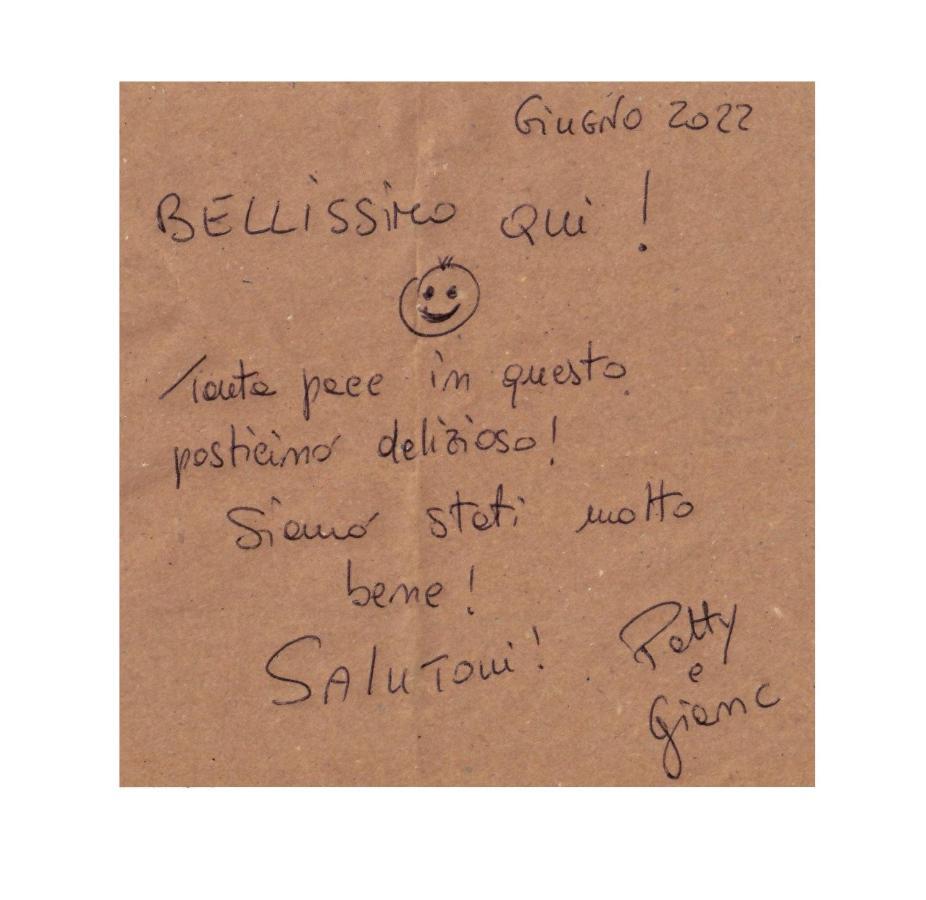 Giugno 2022
BELLISSIMO QUI !
Tanta pace in questo
posticino delizioso!
Siamo stati molto
bene !
SALUTONI!
Patty
e
Gianc